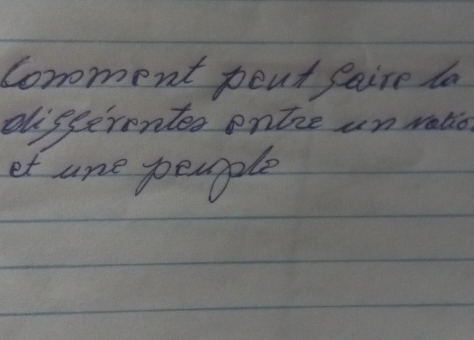 Comment peut faire la
différentes entre un natio
et une peuple